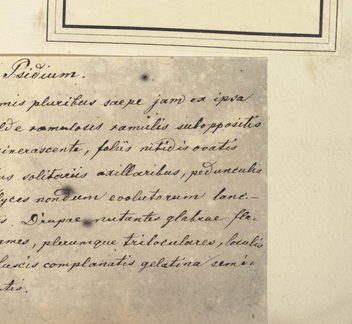 Psidium.
mis pluribus saepe jam ex ipsa
lde ramulosis ramulis suboppositis
cinerascente, foliis nitidis ovatis
us solitariis axillaribus, pedunculis
lyces nondum evolutorum lanc-
s. Drupae nutantes glabrae
ames, plerumque triloculares, loculis
fuscis complanatis gelatina semi-
tis.